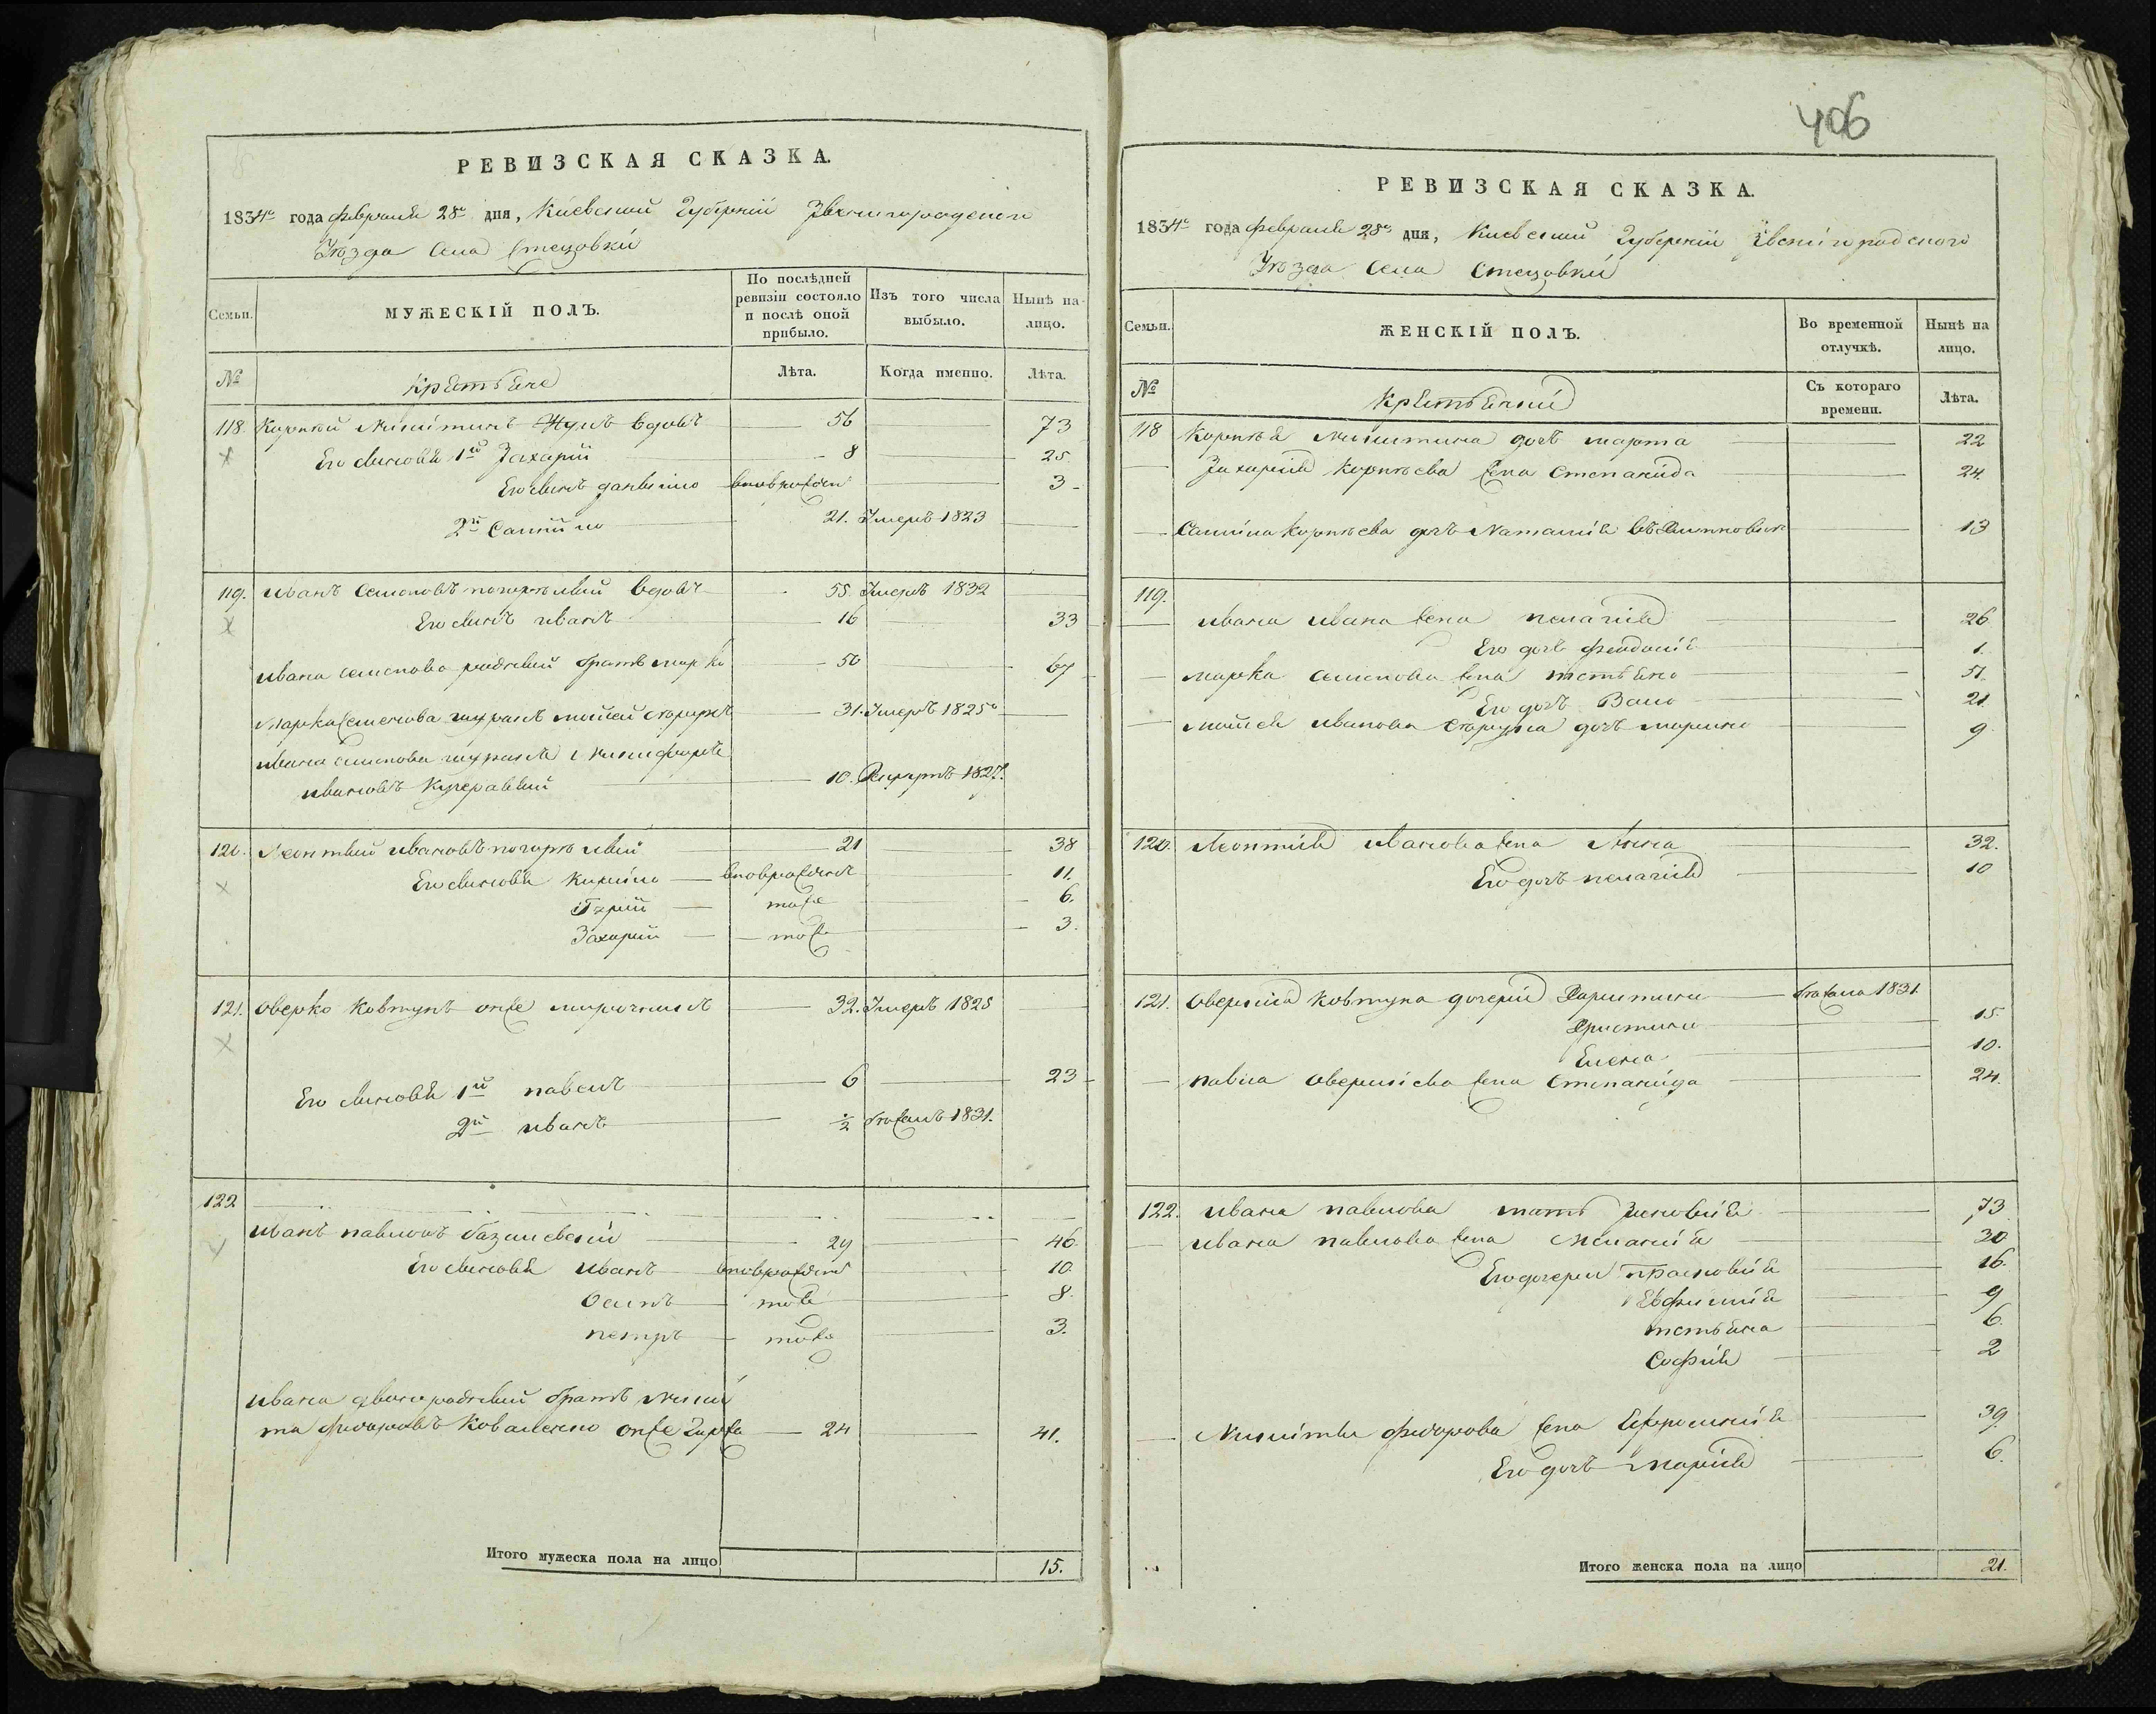 406
РЕВИЗСКАЯ СКАЗКА.
1834го года февраля 28го дня, Киевской Губерніи Звенигородскаго
Уѣзда Села Стецовки
Семьи.
МУЖЕСКІЙ ПОЛЪ.
По послѣдней ревизіи состояло и послѣ оной прибыло.
Изъ того числа выбыло.
Нынѣ на лицо.
№
Крестьяне
Лѣта.
Когда именно.
Лѣта.
118. Корнѣй Никитинъ вдовъ 56 73
Его сыновья 1й Захарій 8 25
Его сынъ Данѣило вновьрожден 3
2й Самійло 21. Умеръ 1823
119. Иванъ Семеновъ погорѣлый вдовъ 55. Умеръ 1832
Его сынъ Иванъ 16 33
Ивана Семенова родный братъ Марко 50 67
Марка Семенова шуринъ Мойсей 31. Умеръ 1825го
Ивана Семенова Никифоръ
Ивановъ Кучеравый 10. Рекрутъ 1827.
120. Леонтѣй Ивановъ погорѣлый 21 38
Его сыновья Кирило вноврожденъ 11.
тоже 6.
Захарій тоже 3.
121. Оверко Ковтунъ онже 32. Умеръ 1828
Его сыновья 1й Павелъ 6 23
2й Иванъ ½ 1831.
122
Иванъ Павловъ 29 46.
Его сыновья Иванъ вноврожден 10.
Осипъ тоже 8.
Петръ тоже 3.
Ивана двоюродный братъ Ники
та Федоровъ Коваленко онже 24 41.
Итого мужеска пола на лицо 15.
РЕВИЗСКАЯ СКАЗКА.
1834го года февраля 28го дня, Киевской Губерніи Звенигородскаго
Уѣзда Села Стецовки
Семьи.
ЖЕНСКІЙ ПОЛЪ.
Во временной отлучкѣ.
Нынѣ на лицо.
№
Крестьянки
Съ котораго времени.
Лѣта.
118 Корнѣя Никитина дочь Марта 22
Захарія Корнѣева жена Степанида 24.
Самійла Корнѣева дочь Наталія 13
119.
Ивана Ивана жена Пелагія 26
Его дочь Феодосія 1.
Марка Семенова жена Тетьяна 51.
Его дочь 21.
Мойсея Иванова дочь Марина 9
120. Леонтія Иванова жена Анна 32.
Его дочь Пелагія 10
121. Оверкія Ковтуна дочери 1831
Христина 15.
Елена 10.
Павла Оверкіева жена Степанида 24.
122. Ивана Павлова мать Зеновія 73
Ивана Павлова жена Меланія 30
Его дочери Прасковія 16.
Евфимія 9
Тетьяна 6.
Софія 2
Никиты Федорова жена Ефросинія 39.
Его дочь Марія 6.
Итого женска пола на лицо 21.